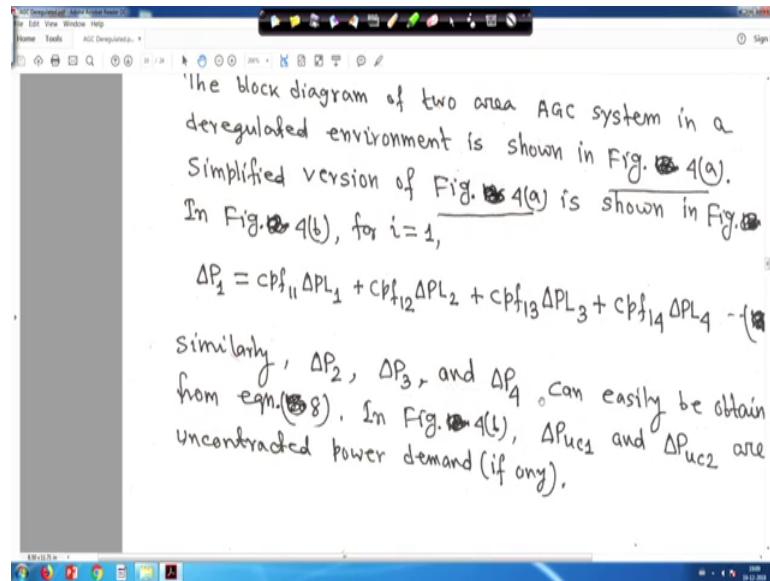 AGC Deregulated.pdf - Adobe Acrobat Reader DC
File Edit View Window Help
Home Tools AGC Deregulated.p... × Sign
The block diagram of two area AGC system in a
deregulated environment is shown in Fig. 4(a).
Simplified version of Fig. 4(a) is shown in Fig.
In Fig. 4(b), for i=1,
ΔP₁ = cpf₁₁ΔPL₁ + cpf₁₂ΔPL₂ + cpf₁₃ΔPL₃ + cpf₁₄ΔPL₄ --(
Similarly, ΔP₂, ΔP₃, and ΔP₄ can easily be obtain
from eqn.(8). In Fig. 4(b), ΔPuc1 and ΔPuc2 are
uncontracted power demand (if any).